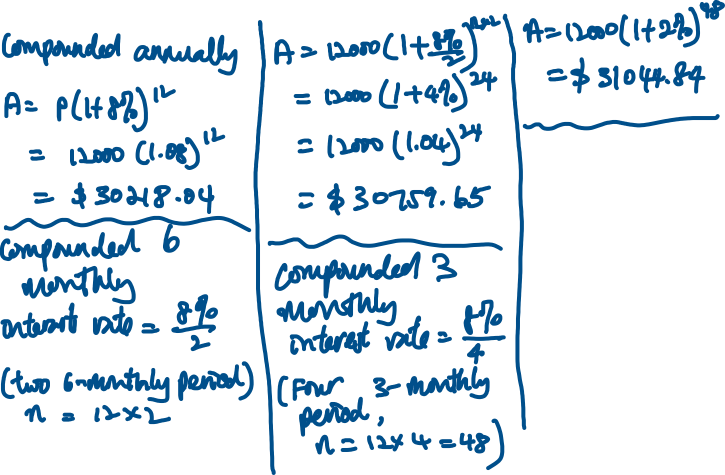 Compounded annually
A = P(1+8%)^12
= 12000 (1.08)^12
= $30218.04
Compounded 6
monthly
interest rate = 8%/2
(two 6-monthly period)
n = 12×2
A = 12000(1+8%/2)^12×2
= 12000 (1+4%)^24
= 12000 (1.04)^24
= $30759.65
Compounded 3
monthly
interest rate = 8%/4
(Four 3-monthly
period,
n = 12×4=48)
A = 12000(1+2%)^48
= $31044.84